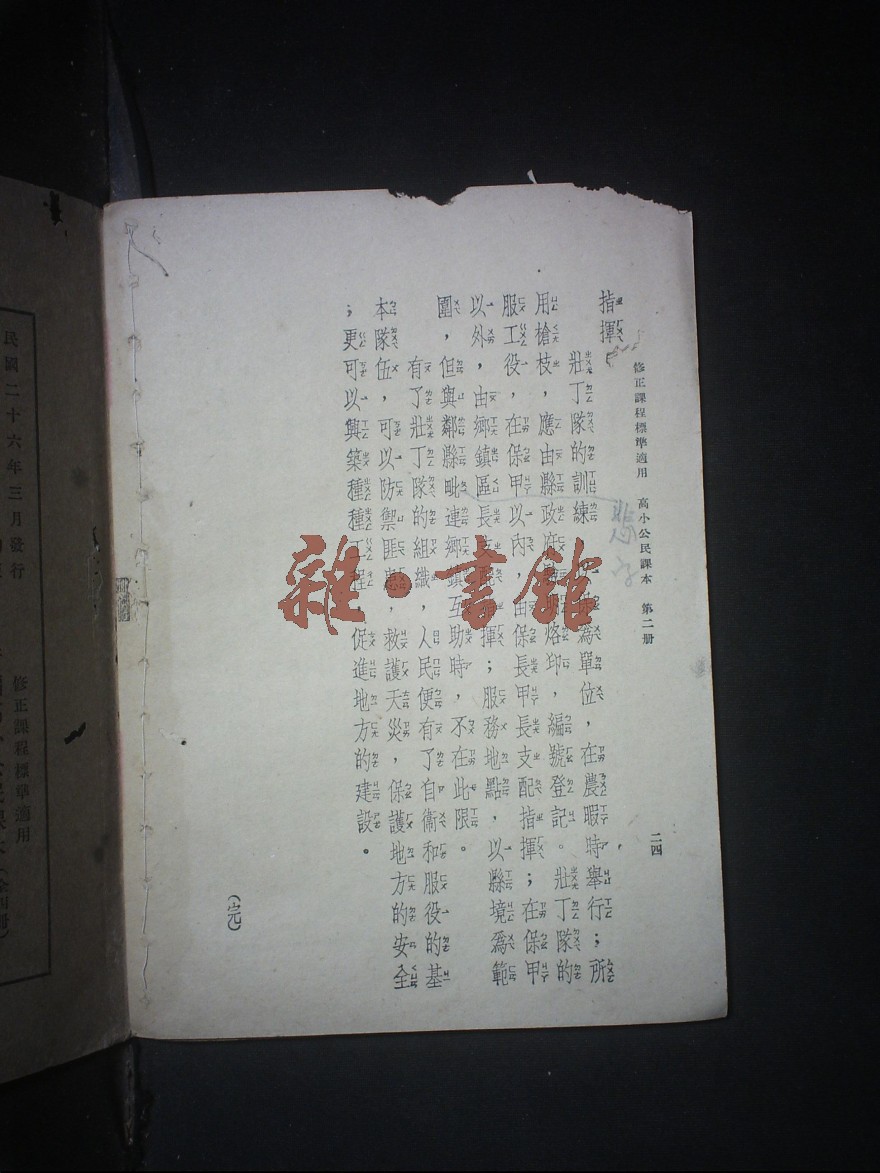 修正課程標準適用 高小公民課本 第二册 二四
指揮
壯丁隊的訓練 爲單位，在農暇時舉行；所
用槍枝，應由縣政府 烙印，編號登記。壯丁隊的
服工役，在保甲以內，由保長甲長支配指揮；在保甲
以外，由鄉鎮區長支 揮；服務地點，以縣境爲範
圍，但與鄰縣毗連鄉鎮互助時，不在此限。
有了壯丁隊的組織，人民便有了自衛和服役的基
本隊伍，可以防禦匪患，救護天災，保護地方的安全
；更可以興築種種工程，促進地方的建設。
（完）
雜·書館
修正課程標準適用
民國二十六年三月發行